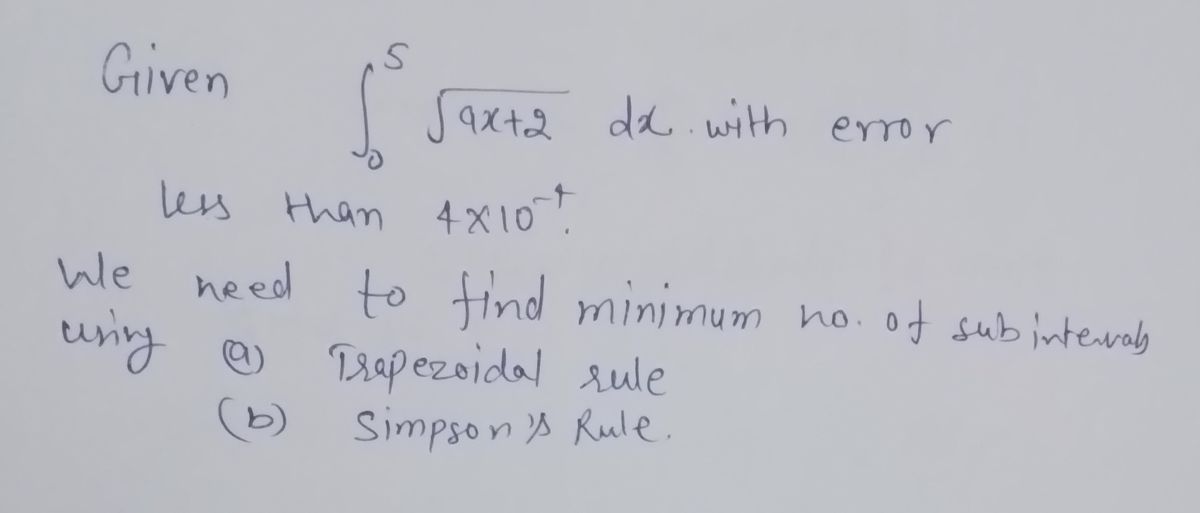 Given ∫₀⁵ √9x+2 dx. with error
less than 4×10⁻⁴.
We need to find minimum no. of subintervals
using (a) Trapezoidal rule
(b) Simpson's Rule.